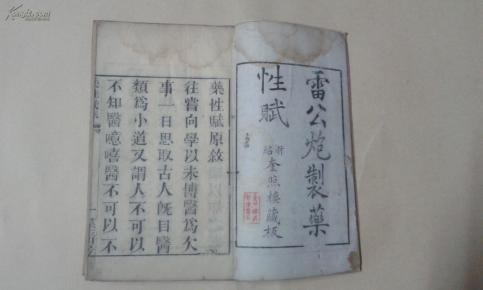 雷公炮製藥
性賦
奎照樓藏板
藥性賦原敘
往嘗向學以未博醫爲欠
事一日思取古人既目醫
類爲小道又謂人不可以
不知醫噫嘻醫不可以不